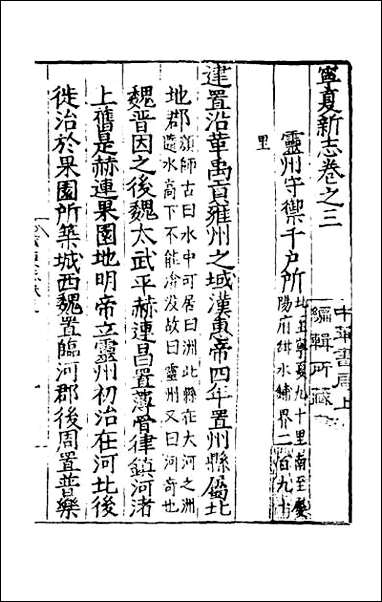 寧夏新志卷之三
靈州守禦千戶所
北至寧夏九十里南至慶
陽府甜水鋪界二百九十
里
建置沿革禹貢雍州之域漢惠帝四年置州縣屬北
地郡
顏師古曰水中可居曰洲此縣在大河之洲
隨水高下不能渰沒故曰靈州又曰河奇也
魏晉因之後魏太武平赫連昌置薄骨律鎮河渚
上舊是赫連果園地明帝立靈州初治在河北後
徙治於果園所築城西魏置臨河郡後周置普樂
中華書局上
編輯所藏